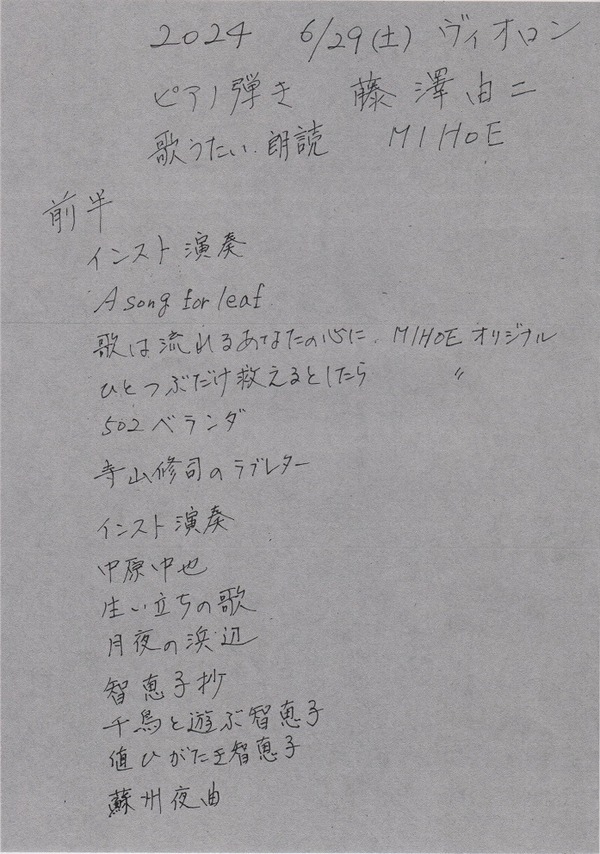 2024 6/29(土) ヴィオロン
ピアノ弾き 藤澤由二
歌うたい、朗読 MIHOE
前半
インスト演奏
A song for leaf
歌は流れるあなたの心に、MIHOE オリジナル
ひとつぶだけ救えるとしたら 〃
502ベランダ
寺山修司のラブレター
インスト演奏
中原中也
生い立ちの歌
月夜の浜辺
智恵子抄
千鳥と遊ぶ智恵子
値ひがたき智恵子
蘇州夜曲